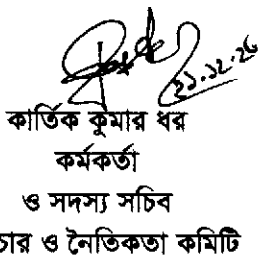 ২১.১২.২৫
কার্তিক কুমার ধর
কর্মকর্তা
ও সদস্য সচিব
চার ও নৈতিকতা কমিটি